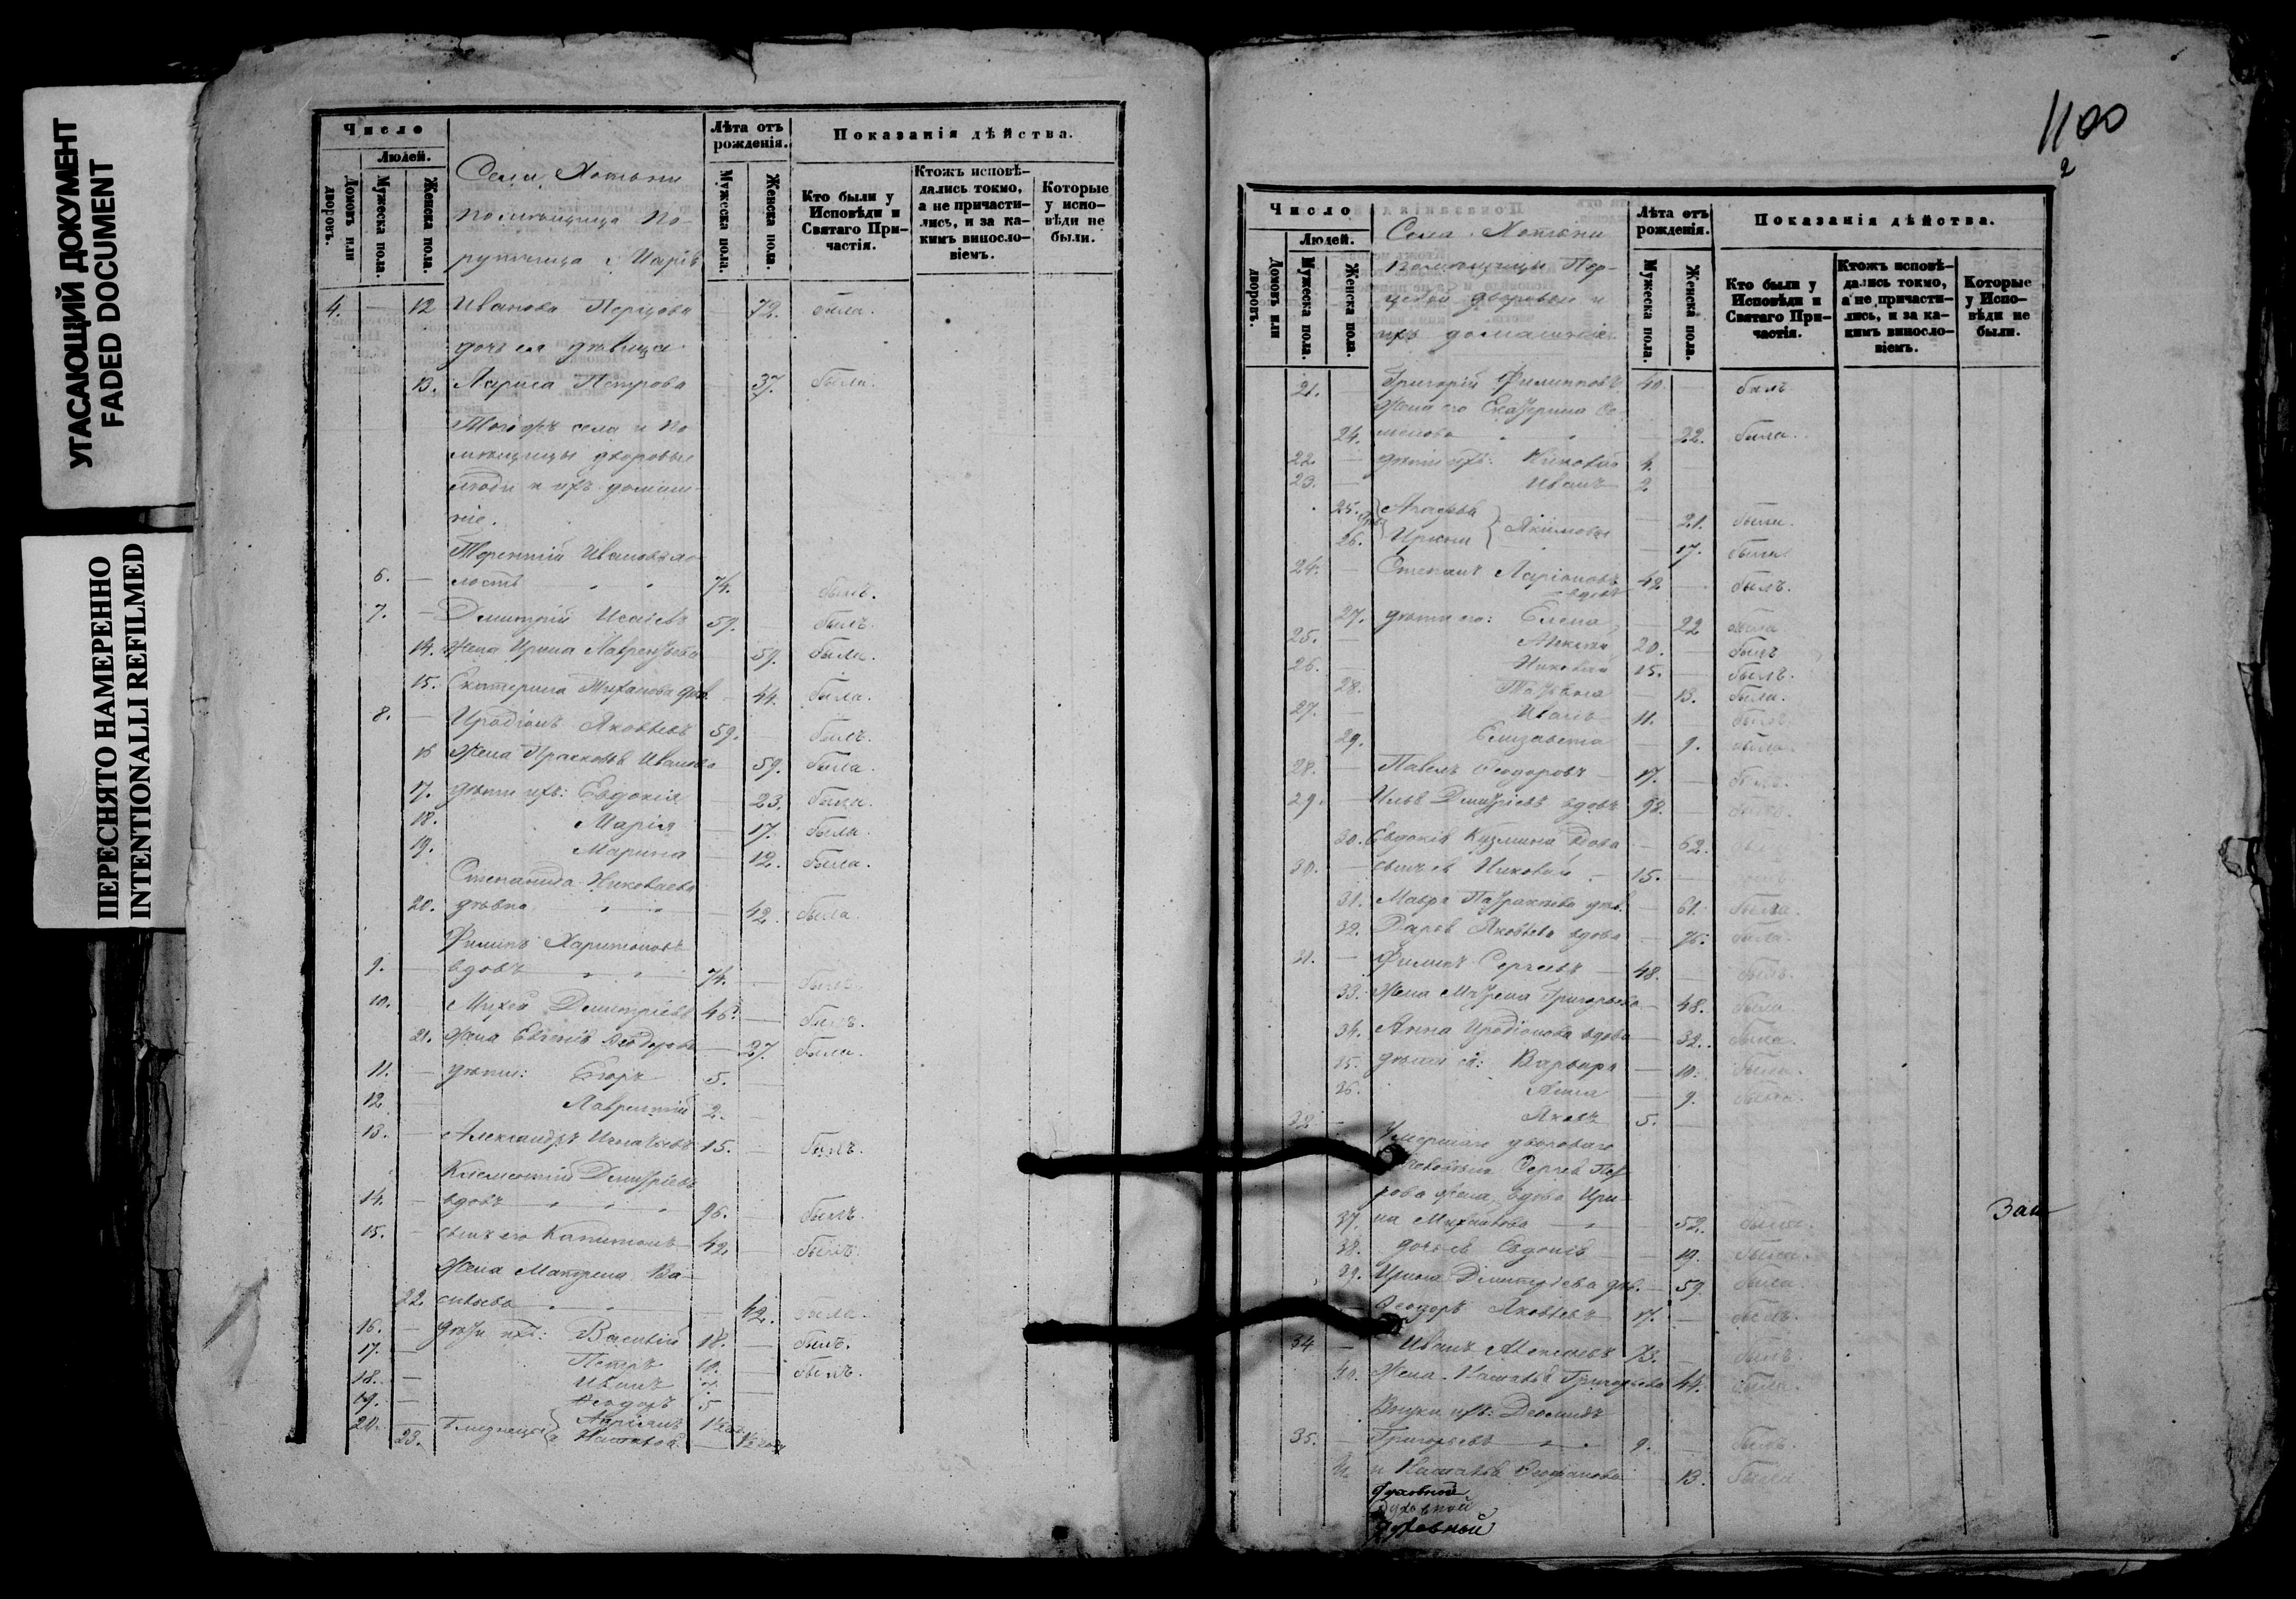 УГАСАЮЩИЙ ДОКУМЕНТ
FADED DOCUMENT
ПЕРЕСНЯТО НАМЕРЕННО
INTENTIONALLI REFILMED
Число
Людей.
Домовъ или дворовъ.
Мужеска пола.
Женска пола.
Лѣта отъ рожденія.
Мужеска пола.
Женска пола.
Показанія дѣйства.
Кто были у Исповѣди и Святаго Причастія.
Ктожъ исповѣдались токмо, а не причастились, и за какимъ винословіемъ.
Которые у исповѣди не были.
Села
Помѣщица По-
ручица Марія
4. — 12 Иванова 72. была.
дочь ея дѣвица
13. Петрова 37. была.
Тогожъ села и По
мѣщицы дворовые
люди и ихъ домаш-
ніе.
Терентій Ивановъ
6. — 74. былъ.
7. — Димитрій Исаіевъ 59. былъ.
14. Жена Ирина Лаврентьева 59. была.
15. Екатерина 44. была.
8. — Иродіонъ Яковлевъ 59. — былъ.
16 Жена Прасковья Иванова 59. была.
17. дѣти ихъ: Евдокія 23. была.
18. Марія — 17. была.
19. Марина — 12. была.
Степанида Николаева
20. дѣвка — 42. была.
Филипъ Харитоновъ
9. — вдовъ 74. — былъ.
10. Михей Димитріевъ 46. — былъ.
21. Жена Евгенія Ѳеодорова — 27. была.
11. — дѣти: Егоръ 5. —
12 — Лаврентій 2. —
13. — Александръ Игнатьевъ 15. — былъ.
Климентій Дмитріевъ
14. — вдовъ 96. — былъ.
15. — сынъ его Капитонъ 42. — былъ.
Жена Матрена Ва-
22. сильева — 42. была.
16. — дѣти ихъ: Василій 18. — былъ.
17. — Петръ 10. — былъ.
18. — Иванъ 7. —
19. — Ѳеодоръ 5 —
20. — Близнецы 1½
23. Наталія — 1½
1100
2
Число
Людей.
Домовъ или дворовъ.
Мужеска пола.
Женска пола.
Лѣта отъ рожденія.
Мужеска пола.
Женска пола.
Показанія дѣйства.
Кто были у Исповѣди и Святаго Причастія.
Ктожъ исповѣдались токмо, а не причастились, и за какимъ винословіемъ.
Которые у Исповѣди не были.
Села
Помѣщицы
дворовые и
ихъ домашніе.
21. — Григорій Филипповъ 40. — былъ
Жена его Екатерина Се-
24. менова — 22. была.
22. — дѣти ихъ: Николай 4. —
23. — Иванъ 2
25. Агафья 21. была.
26. Ирина Якимовы — 17. была
24. — Степанъ Ларіоновъ 42 — былъ.
вдовъ
27. дѣти его: Елена — 22 была
25. — Алексій 20. — былъ
26. — Николай 15. — былъ.
28. Татьяна — 13. была.
27. — Иванъ 11. — былъ.
29. Елизавета — 9. была.
28. — Павелъ Ѳеодоровъ — 17. — былъ.
29. — Илья Дмитріевъ вдовъ 98. —
30. Евдокія Кузмина вдова — 62.
30. — сынъ ея Николай — 15. —
31. Мавра — 61. была.
32. Дарья Яковлева вдова — 76. была.
31. — Филипъ Сергеевъ — 48. — былъ.
33. Жена Матрена Григорьева — 48. была
34. Анна Иродіонова вдова — 32. была.
35. дѣти ея: Варвара — 10. была.
36. Анна — 9. была.
32 — Яковъ 5. —
Умершаго двороваго
Сергея Пет
рова жена, вдова Ири-
37. на Михайлова — 52. была.
38. дочь ея Евдокія — 19. была.
39. Ирина Димитріева — 59. была
Ѳеодоръ Яковлевъ 17. — былъ.
34 — Иванъ Алексѣевъ 73. — былъ.
40. Жена Наталья Григорьева 44. была.
Внуки ихъ: Деомидъ
35. — Григорьевъ 9. — былъ.
и Наталья 13. была.
духовной
духовной
духовный
Зап